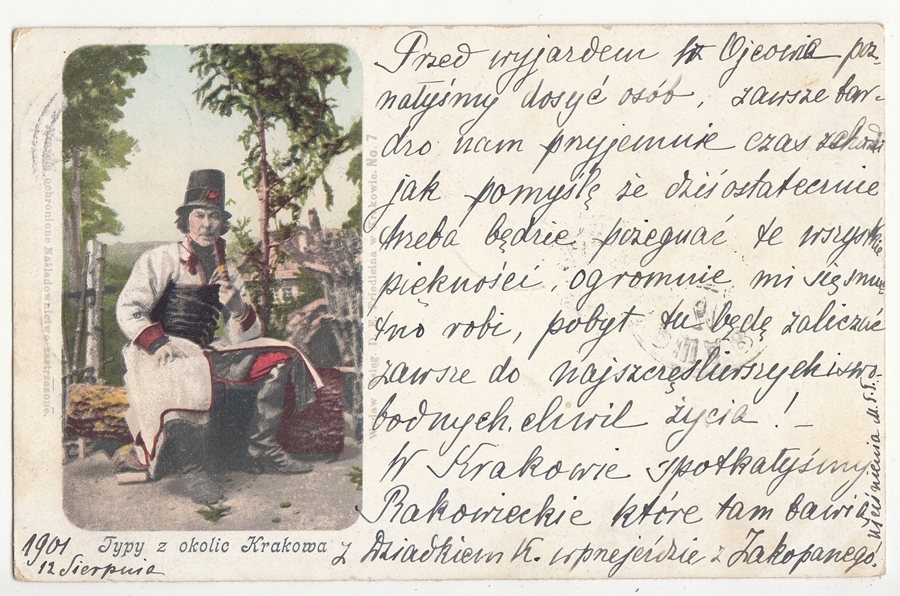 Przed wyjazdem z Ojcowa poz-
nałyśmy dosyć osób, zawsze bar-
dzo nam przyjemnie czas schodzi
jak pomyślę że dziś ostatecznie
trzeba będzie pożegnać te wszystkie
piękności, ogromnie mi się smu-
tno robi, pobyt tu będę zaliczać
zawsze do najszczęśliwszych i swo-
bodnych chwil życia! –
W Krakowie spotkałyśmy
Rakowieckie które tam bawią
z Dziadkiem K. w przejeździe z Zakopanego.
Uściśnienia M.F.F.
1901
12 Sierpnia
Typy z okolic Krakowa
ochronione Nakładownictwo zastrzeżone.
D. E. Friedleina w Krakowie. No. 7